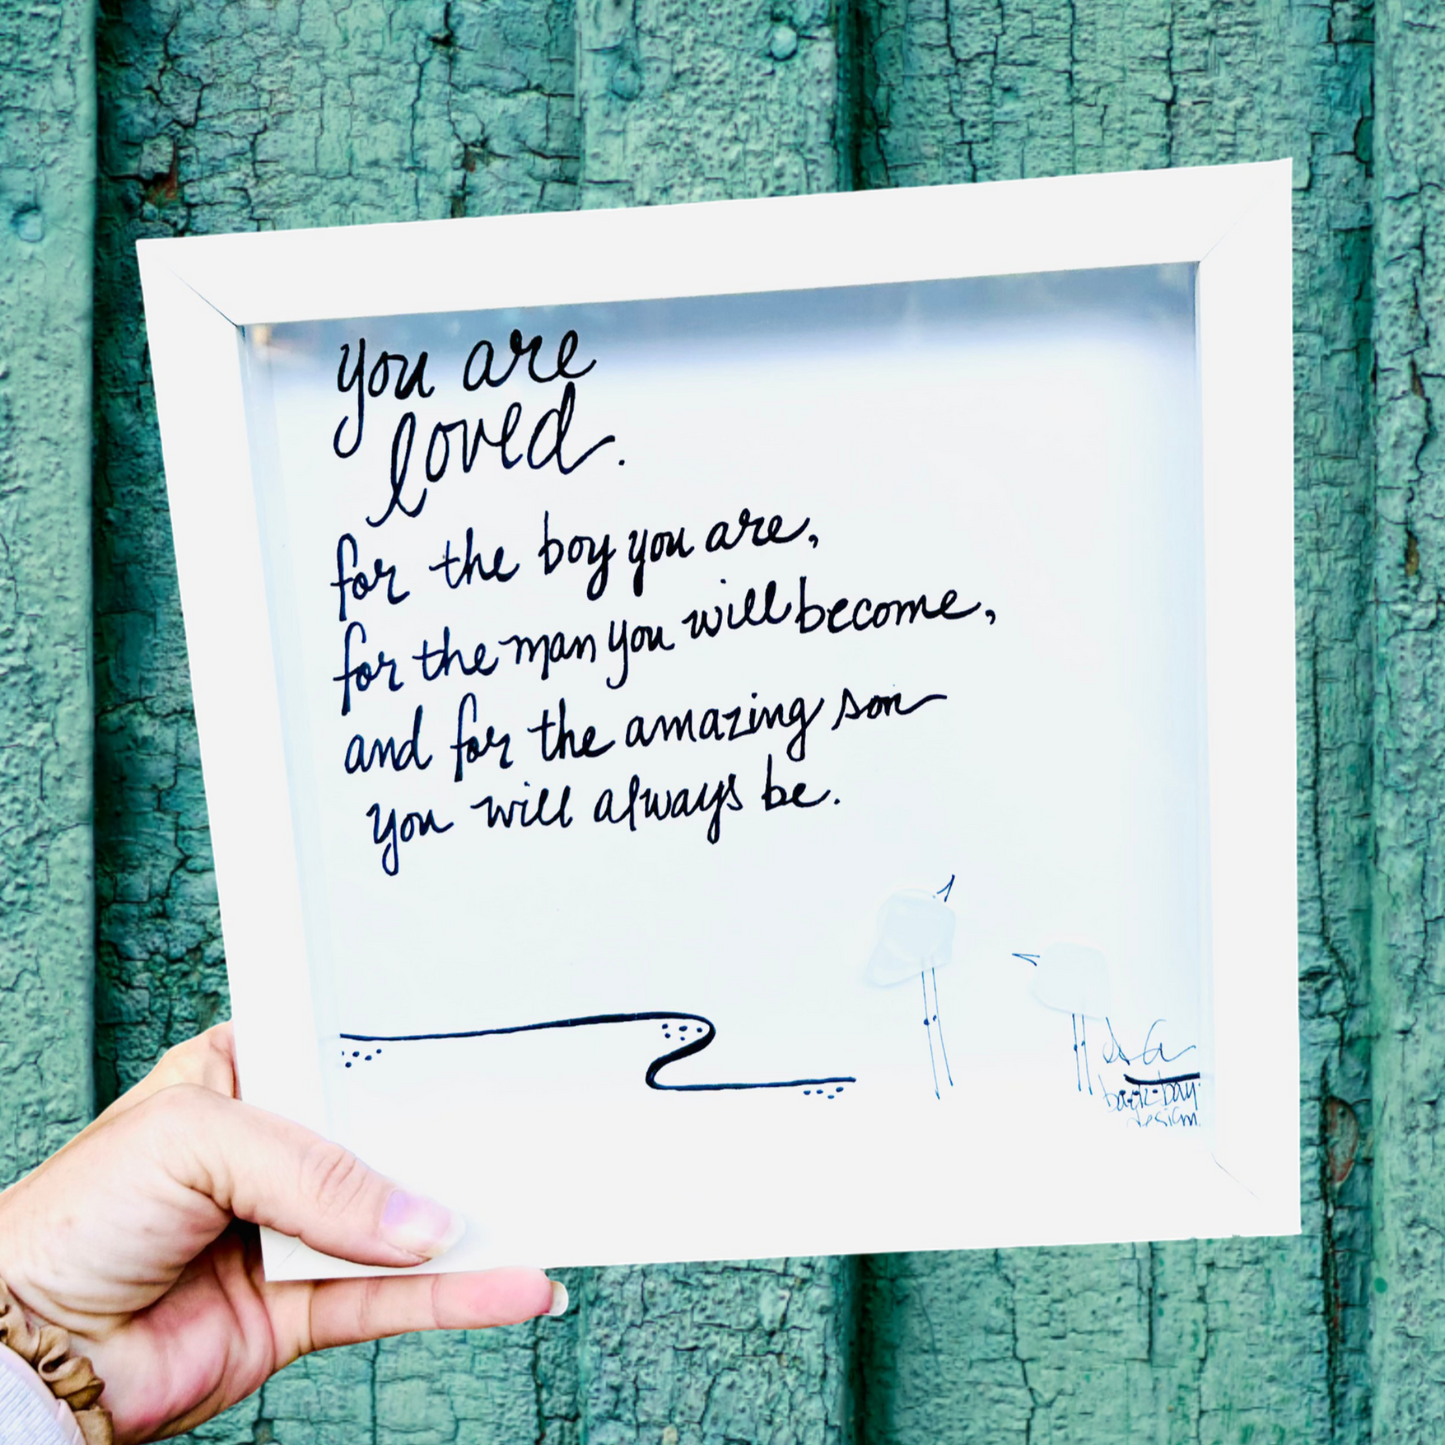 you are
loved.
for the boy you are,
for the man you will become,
and for the amazing son
you will always be.
back bay
design.